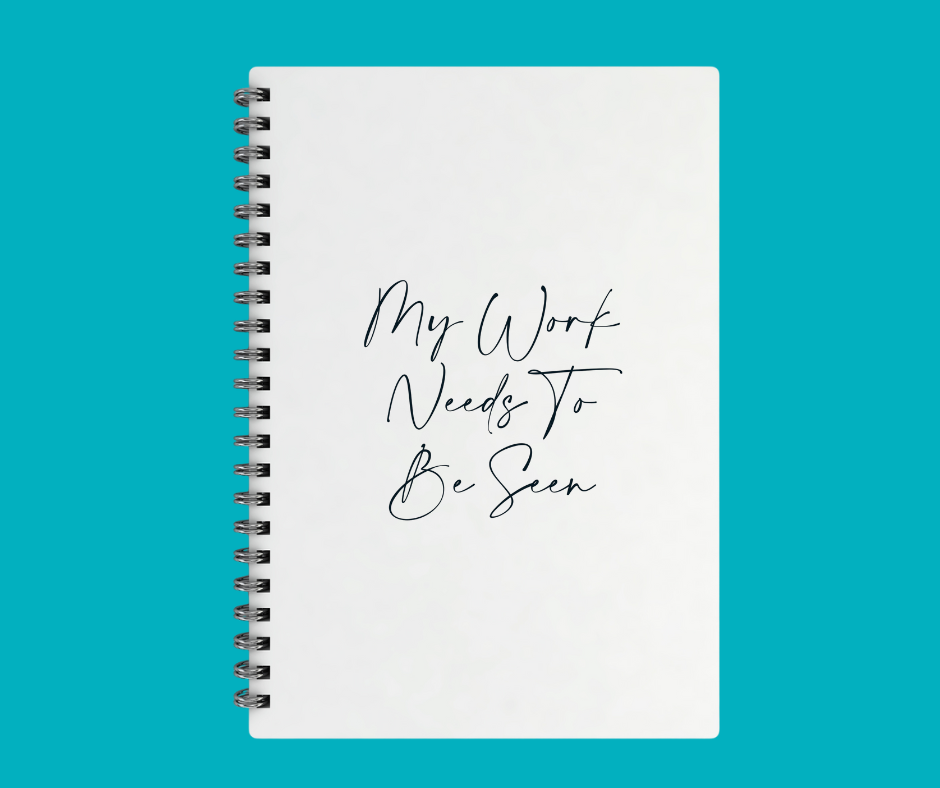 My Work
Needs To
Be Seen